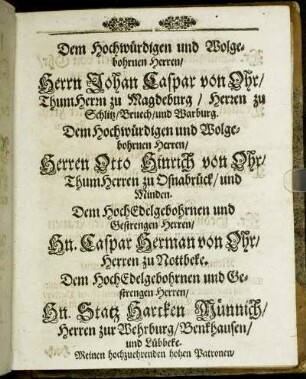 Dem Hochwürdigen und Wolge-
bohrnen Herren/
Herrn Johan Caspar von Ohr/
ThumHerrn zu Magdeburg / Herren zu
Schlitz/Bruech/und Warburg.
Dem Hochwürdigen und Wolge-
bohrnen Herren/
Herren Otto Hinrich von Ohr/
ThumHerren zu Osnabrück/und
Minden.
Dem HochEdelgebohrnen und
Gestrengen Herren/
Hn. Caspar Herman von Ohr/
Herren zu Nottbeke.
Dem HochEdelgebohrnen und Ge-
strengen Herren/
Hn. Statz Hartken Münnich/
Herren zur Wehrburg/Benkhausen/
und Lübbeke.
Meinen hochzuehrenden hohen Patronen/